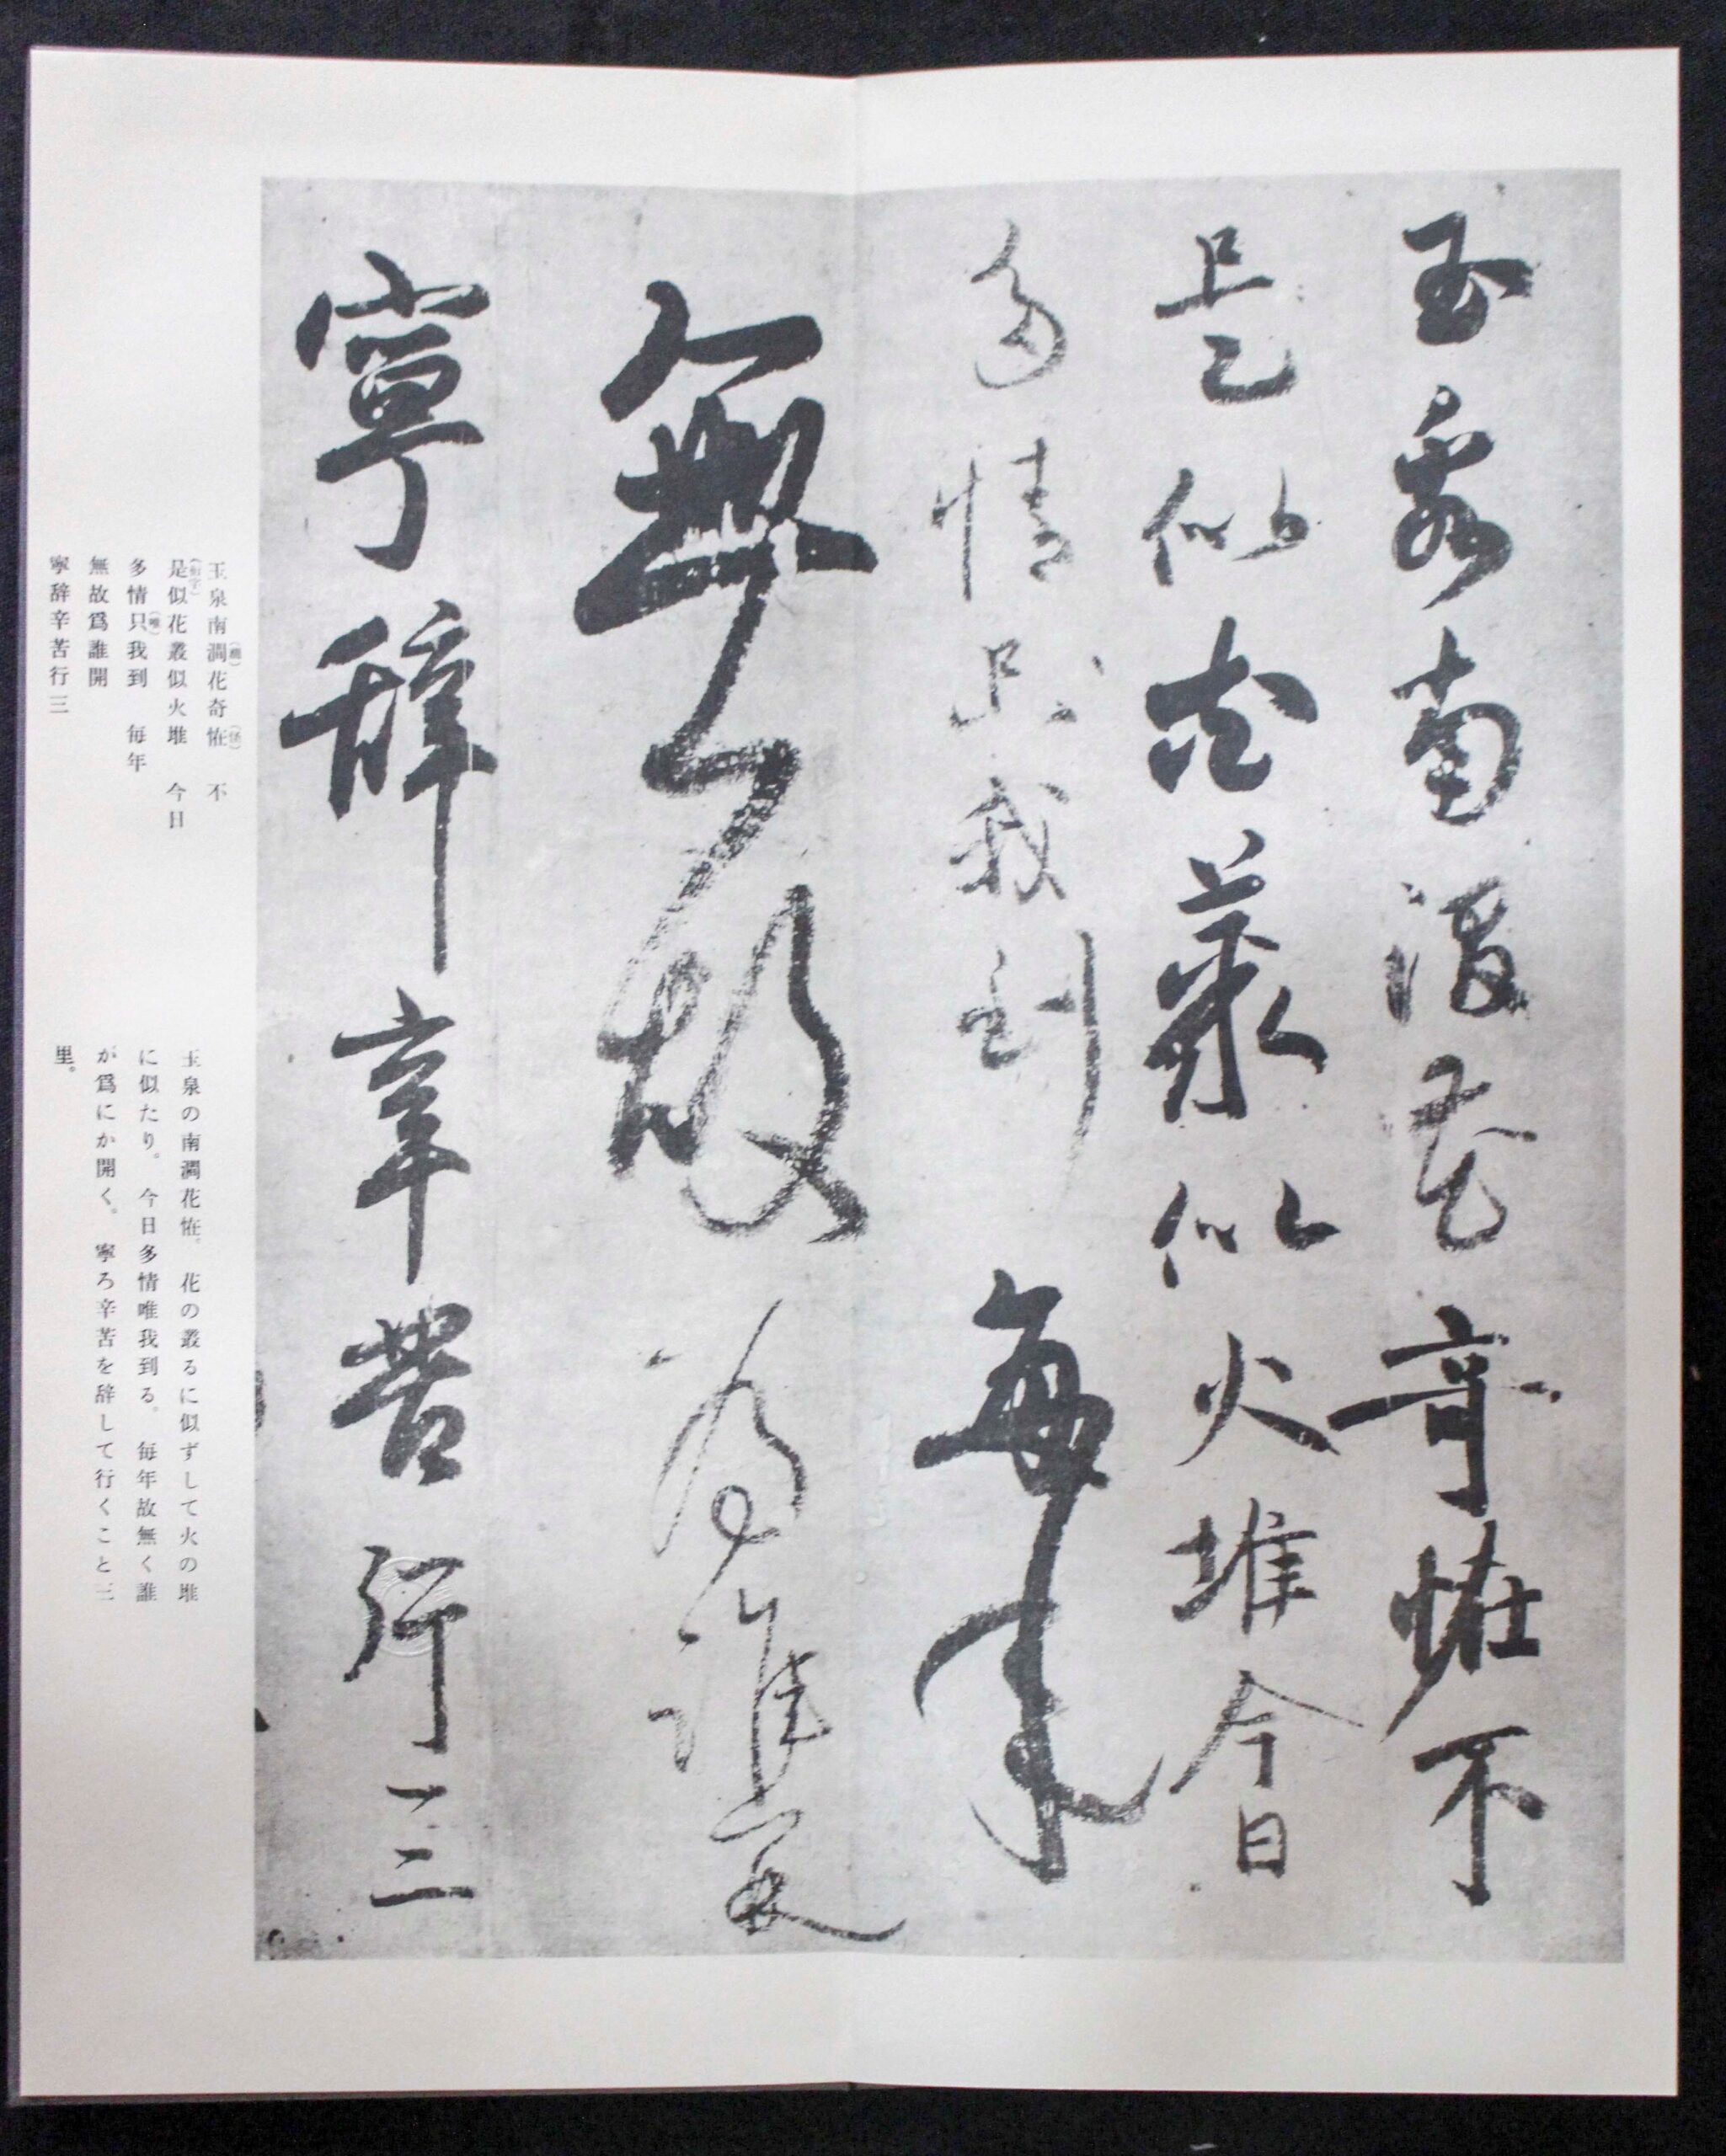 玉泉南澗花奇恠不
是似花叢似火堆今日
多情只我到每年
無故為誰開
寧辞辛苦行三
玉泉南澗花奇恠 不
是似花叢似火堆 今日
多情只我到 毎年
無故爲誰開
寧辞辛苦行三
玉泉の南澗花恠。花の叢るに似ずして火の堆
に似たり。今日多情唯我到る。毎年故無く誰
が爲にか開く。寧ろ辛苦を辞して行くこと三
里。